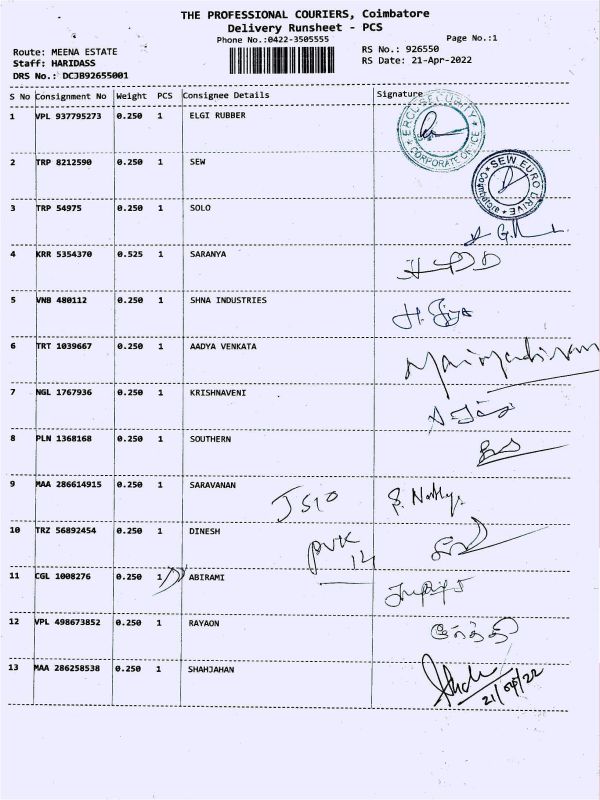 THE PROFESSIONAL COURIERS, Coimbatore
Delivery Runsheet - PCS
Phone No.:0422-3505555
Page No.:1
Route: MEENA ESTATE
RS No.: 926550
Staff: HARIDASS
RS Date: 21-Apr-2022
DRS No.: DCJB92655001
S No Consignment No Weight PCS Consignee Details Signature
1 VPL 937795273 0.250 1 ELGI RUBBER
ERCL SECURITY
CORPORATE OFFICE
2 TRP 8212590 0.250 1 SEW
SEW EURO DRIVE
Coimbatore
3 TRP 54975 0.250 1 SOLO
4 KRR 5354370 0.525 1 SARANYA
5 VNB 480112 0.250 1 SHNA INDUSTRIES
6 TRT 1039667 0.250 1 AADYA VENKATA
7 NGL 1767936 0.250 1 KRISHNAVENI
8 PLN 1368168 0.250 1 SOUTHERN
9 MAA 286614915 0.250 1 SARAVANAN
10 TRZ 56892454 0.250 1 DINESH
PVK
14
11 CGL 1008276 0.250 1 ABIRAMI
12 VPL 498673852 0.250 1 RAYAON
13 MAA 286258538 0.250 1 SHAHJAHAN
21/04/22